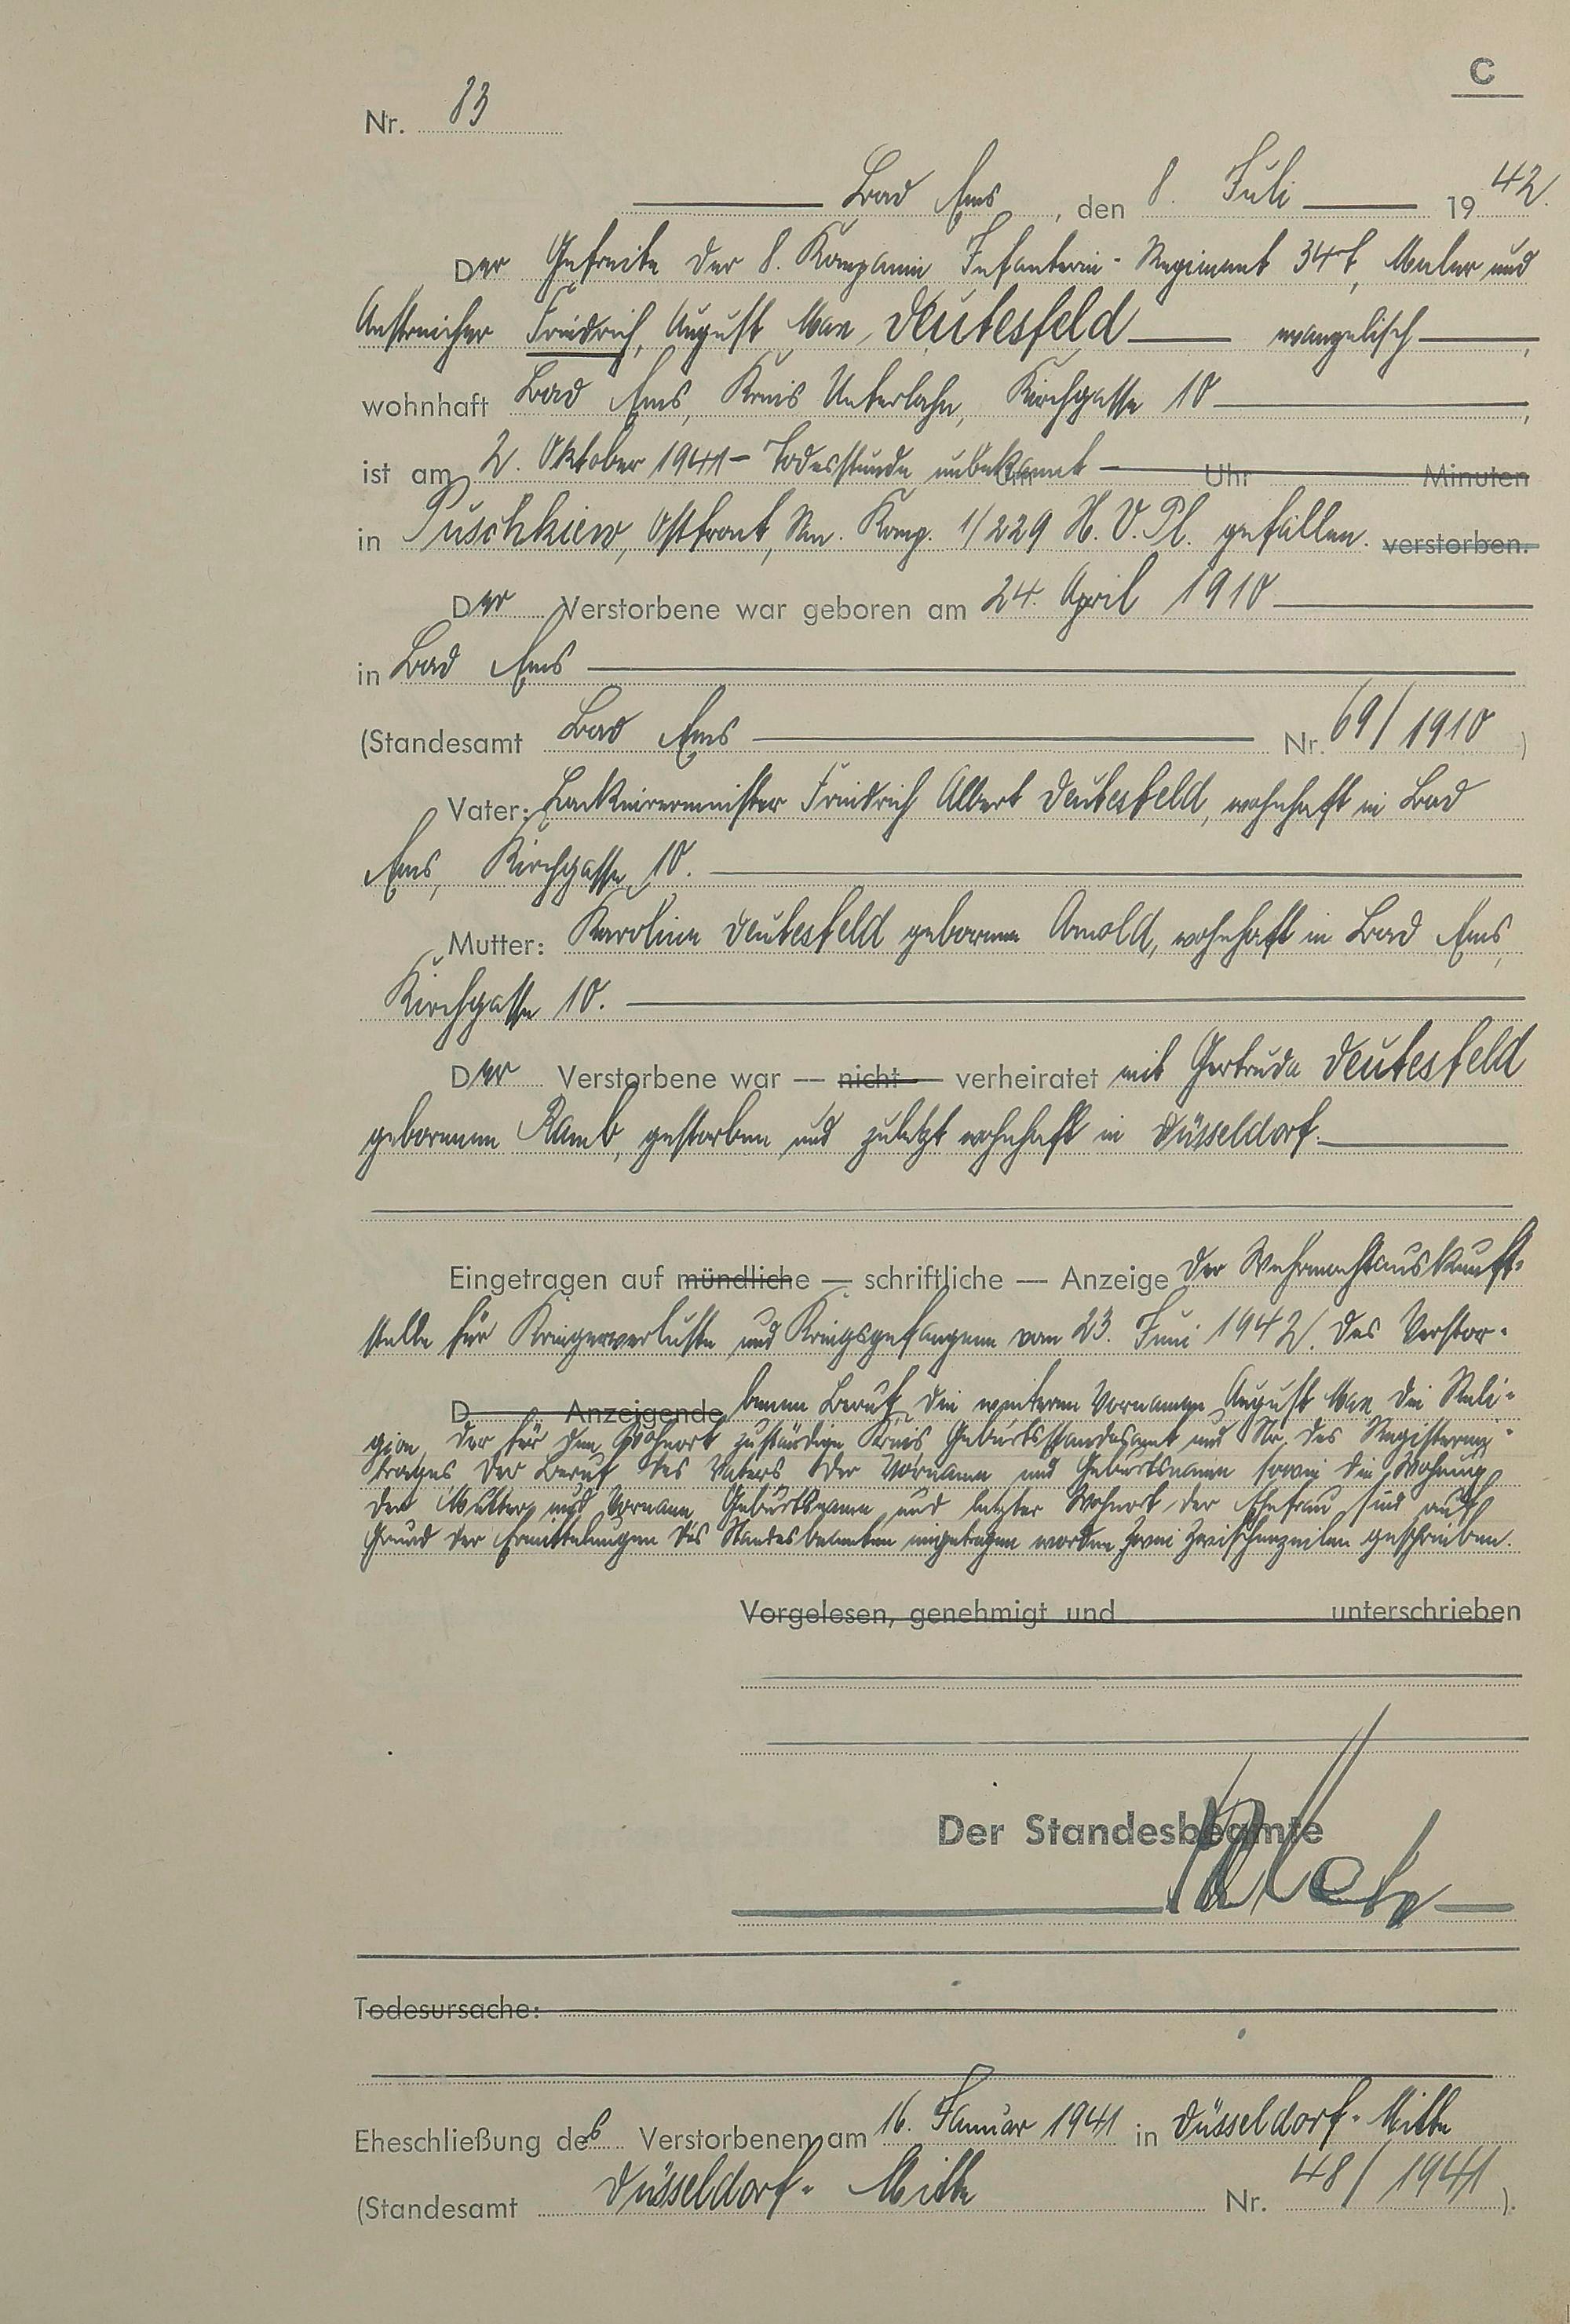 C
Nr. 83
Bad Ems, den 8. Juli 1942.
Der Gefreite der 8. Kompanie Infanterie-Regiment Maler und
Anstreicher Friedrich, August Max, Deutesfeld evangelisch,
wohnhaft Bad Ems, Kreis Unterlahn, Kirchgasse 10,
ist am 2. Oktober 1941 – Todesstunde unbekannt – um Uhr Minuten
in Puschkiew, Ostfront, San. Komp. 1/229 H. V. Pl. gefallen. verstorben.
Der Verstorbene war geboren am 24. April 1910
in Bad Ems
(Standesamt Bad Ems Nr. 69/1910)
Vater: Lackierermeister Friedrich Albert Deutesfeld, wohnhaft in Bad
Ems, Kirchgasse 10.
Mutter: Karoline Deutesfeld geborene Arnold, wohnhaft in Bad Ems,
Kirchgasse 10.
Der Verstorbene war — nicht — verheiratet mit Gertruda Deutesfeld
geborenen Ramb, gestorben und zuletzt wohnhaft in Düsseldorf.
Eingetragen auf mündliche — schriftliche — Anzeige der Wehrmachtauskunft-
stelle für Kriegerverluste und Kriegsgefangene vom 23. Juni 1942. Des Verstor-
D Anzeigende benen Beruf, die weiteren Vornamen August Max die Reli-
gion, der für den Wohnort zuständige Kreis, Geburtsstandesamt und Nr. des Registerein-
trages der Beruf des Vaters der Vorname und Geburtsname sowie die Wohnung
der Mutter, und Vorname, Geburtsname und letzter Wohnort der Ehefrau sind auf
Grund der Ermittelungen des Standesbeamten eingetragen worden. Zwei Zwischenzeilen geschrieben.
Vorgelesen, genehmigt und unterschrieben
Der Standesbeamte
Todesursache:
Eheschließung des Verstorbenen am 16. Januar 1941 in Düsseldorf-Mitte
(Standesamt Düsseldorf-Mitte Nr. 48/1941).